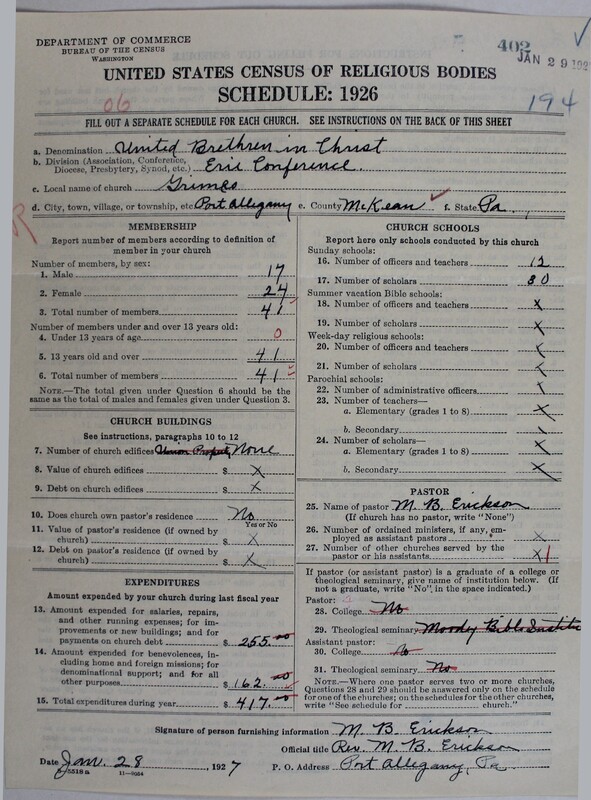 DEPARTMENT OF COMMERCE
BUREAU OF THE CENSUS
WASHINGTON
402
JAN 29 192
UNITED STATES CENSUS OF RELIGIOUS BODIES
SCHEDULE: 1926
06
194
FILL OUT A SEPARATE SCHEDULE FOR EACH CHURCH. SEE INSTRUCTIONS ON THE BACK OF THIS SHEET
a. Denomination United Brethren in Christ
b. Division (Association, Conference, Diocese, Presbytery, Synod, etc.) Erie Conference.
c. Local name of church Grimes
d. City, town, village, or township, etc. Port Allegany e. County McKean f. State Pa.
R
MEMBERSHIP
Report number of members according to definition of
member in your church
Number of members, by sex:
1. Male 17
2. Female 24
3. Total number of members 41
Number of members under and over 13 years old:
4. Under 13 years of age 0
5. 13 years old and over 41
6. Total number of members 41
NOTE.—The total given under Question 6 should be
same as the total of males and females given under Question 3.
CHURCH BUILDINGS
See instructions, paragraphs 10 to 12
7. Number of church edifices None
8. Value of church edifices $ X
9. Debt on church edifices $ X
10. Does church own pastor's residence No
Yes or No
11. Value of pastor's residence (if owned by
church) $ X
12. Debt on pastor's residence (if owned by
church) $ X
EXPENDITURES
Amount expended by your church during last fiscal year
13. Amount expended for salaries, repairs,
and other running expenses; for im-
provements or new buildings; and for
payments on church debt $ 255.00
14. Amount expended for benevolences, in-
cluding home and foreign missions; for
denominational support; and for all
other purposes $ 162.00
15. Total expenditures during year $ 417.00
CHURCH SCHOOLS
Report here only schools conducted by this church
Sunday schools:
16. Number of officers and teachers 12
17. Number of scholars 80
Summer vacation Bible schools:
18. Number of officers and teachers X
19. Number of scholars X
Week-day religious schools:
20. Number of officers and teachers X
21. Number of scholars X
Parochial schools:
22. Number of administrative officers X
23. Number of teachers—
a. Elementary (grades 1 to 8) X
b. Secondary
24. Number of scholars—
a. Elementary (grades 1 to 8) X
b. Secondary X
PASTOR
25. Name of pastor M. B. Erickson
(If church has no pastor, write "None")
26. Number of ordained ministers, if any, em-
ployed as assistant pastors X
27. Number of other churches served by the
pastor or his assistants X 1
If pastor (or assistant pastor) is a graduate of a college or
theological seminary, give name of institution below. (If
not a graduate, write "No" in the space indicated.)
Pastor:
28. College No
29. Theological seminary Moody Bible Institute
Assistant pastor:
30. College No
31. Theological seminary No
NOTE.—Where one pastor serves two or more churches,
Questions 28 and 29 should be answered only on the schedule
for one of the churches; on the schedules for the other churches,
write "See schedule for church."
Signature of person furnishing information M. B. Erickson
Official title Rev. M. B. Erickson
Date Jan. 28, 1927 P. O. Address Port Allegany, Pa
11—9024